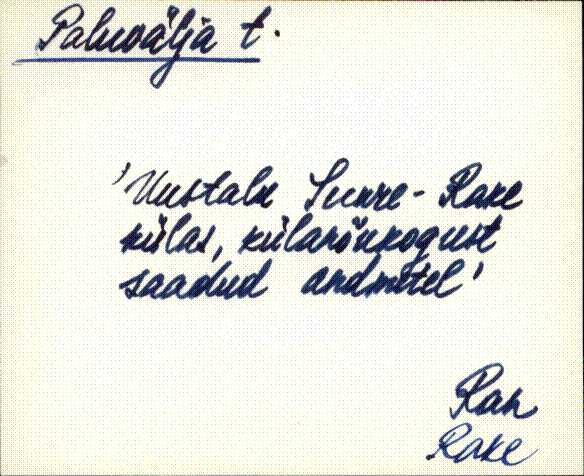 Paluvälja t.
'Uustalu Suure-Rake
külas, külanõukogust
saadud andmetel'
Ran
Rake